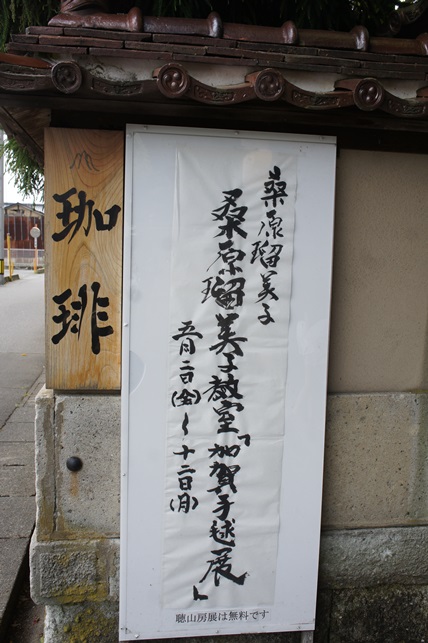 桑原瑠美子
桑原瑠美子教室「加賀手毬展」
五月二日(金)～十二日(月)
珈琲
聴山房展は無料です